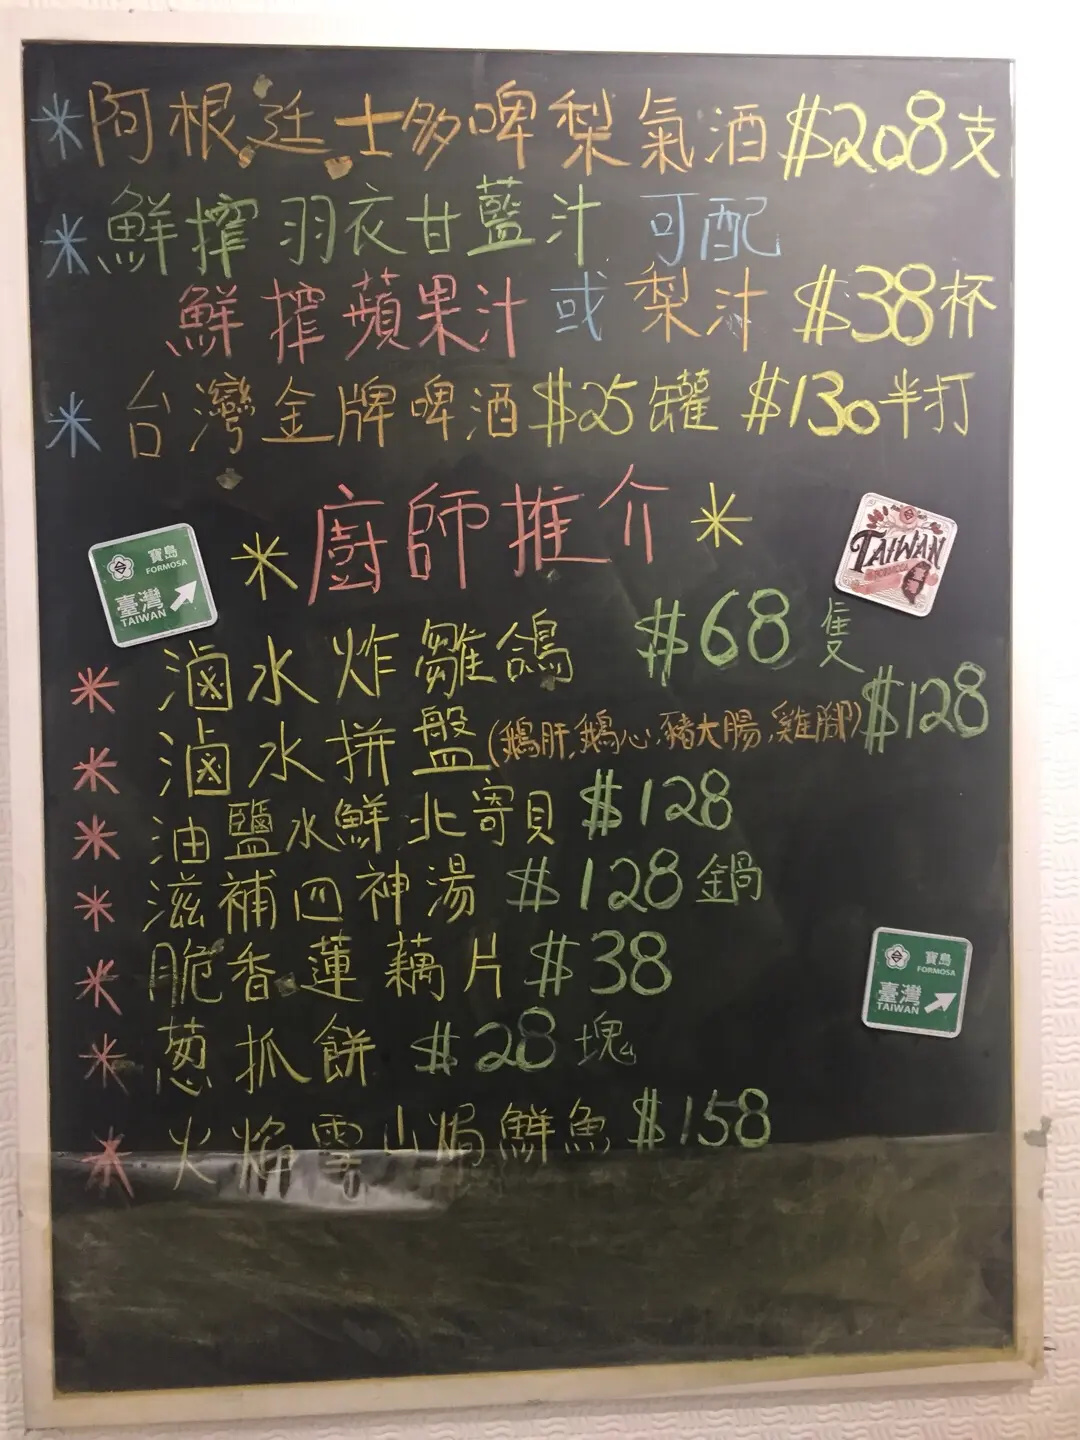 *阿根廷士多啤梨氣酒 $208支
*鮮搾羽衣甘藍汁 可配
鮮搾蘋果汁 或 梨汁 $38杯
*台灣金牌啤酒 $25罐 $130半打
*廚師推介*
寶島
FORMOSA
臺灣
TAIWAN
TAIWAN
*滷水炸雛鴿 $68隻
*滷水拼盤(鵝肝,鵝心,豬大腸,雞腳)$128
*油鹽水鮮北寄貝 $128
*滋補四神湯 $128鍋
*脆香蓮藕片 $38
寶島
FORMOSA
臺灣
TAIWAN
*葱抓餅 $28塊
*火焰雪山焗鮮魚 $158